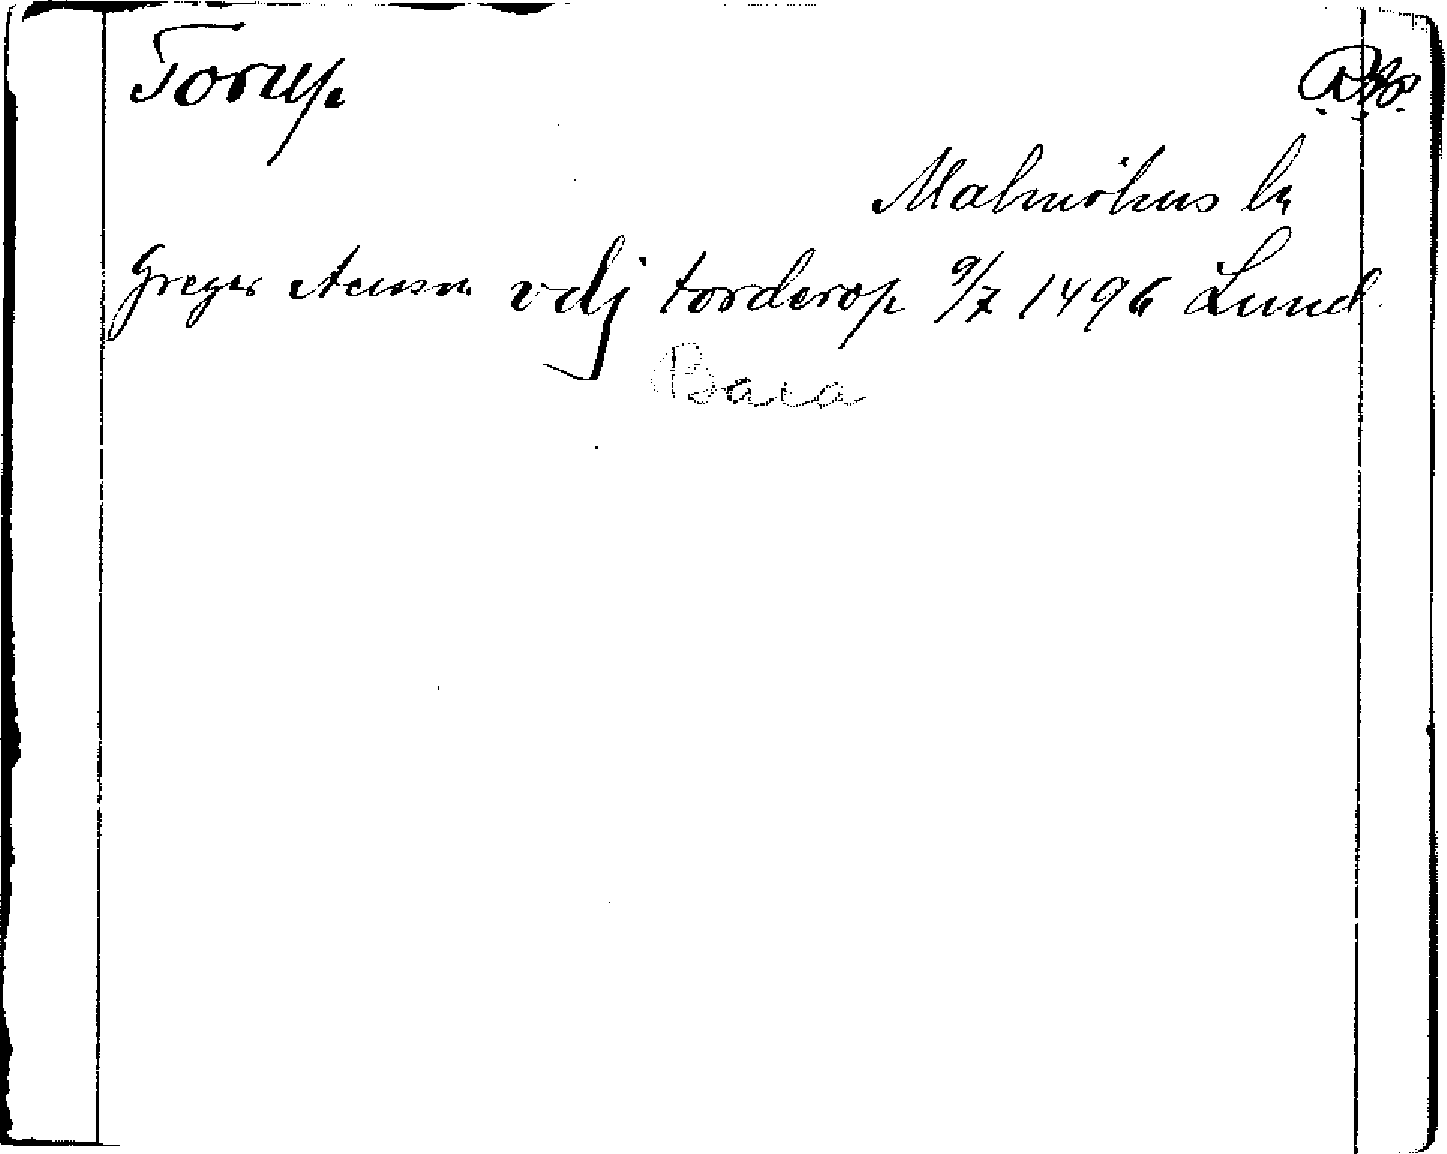 Torup
Malmöhus ln
Greger vdj torderop 9/7 1496 Lund
Bara